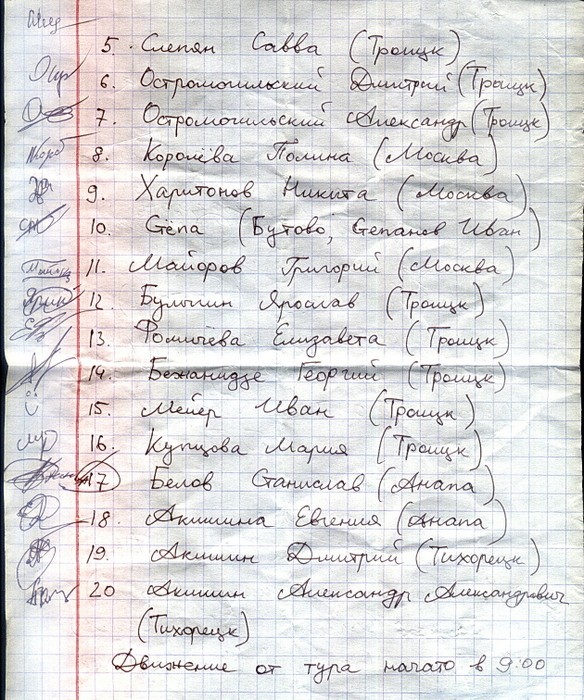 5. Слепян Савва (Троицк)
6. Остромогильский Дмитрий (Троицк)
7. Остромогильский Александр (Троицк)
8. Королёва Полина (Москва)
9. Харитонов Никита (Москва)
10. Стёпа (Бутово, Степанов Иван)
11. Майоров Григорий (Москва)
12. Булыгин Ярослав (Троицк)
13. Фомичева Елизавета (Троицк)
14. Бежанидзе Георгий (Троицк)
15. Мейер Иван (Троицк)
16. Купцова Мария (Троицк)
17 Белов Станислав (Анапа)
18. Акишина Евгения (Анапа)
19. Акишин Дмитрий (Тихорецк)
20 Акишин Александр Александрович
(Тихорецк)
Движение от тура начато в 9:00